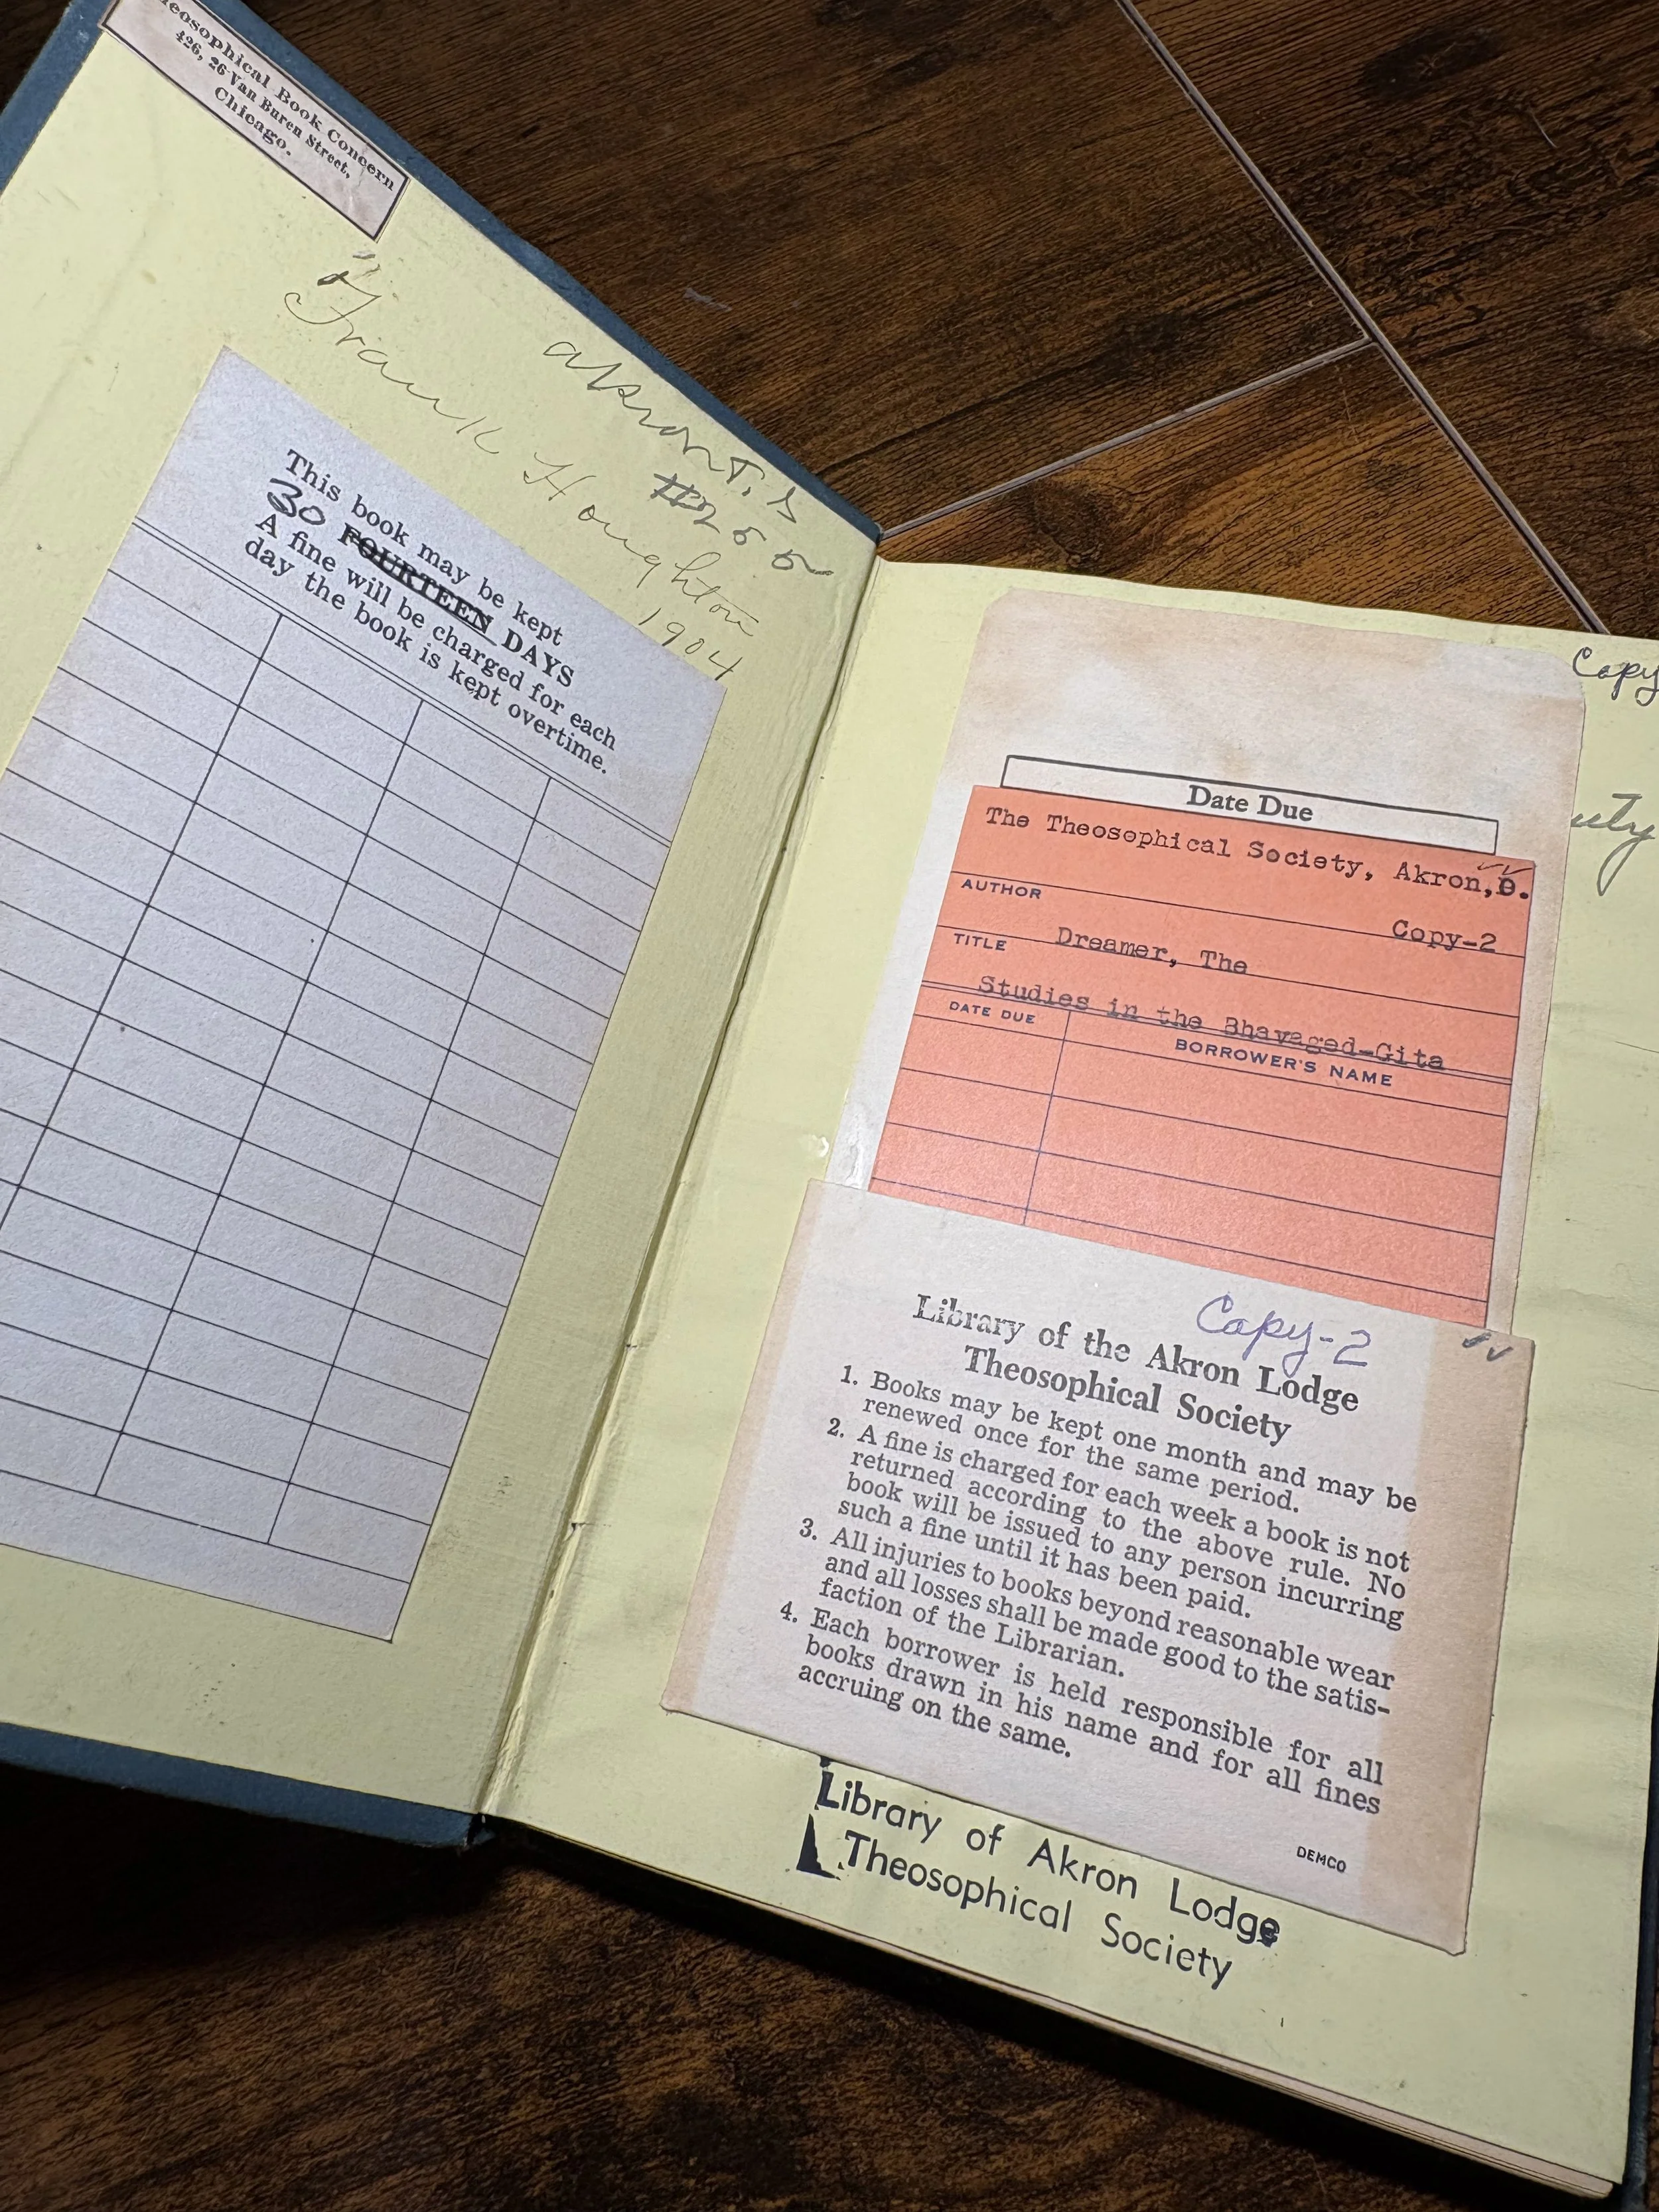 Theosophical Book Concern
426, 26 Van Buren Street,
Chicago.
Akron T. S
#255
Frank Houghton
1904
This book may be kept
30 FOURTEEN DAYS
A fine will be charged for each
day the book is kept overtime.
Copy
uty
Date Due
The Theosophical Society, Akron,O.
AUTHOR
Copy-2
TITLE Dreamer, The
Studies in the Bhavaged-Gita
DATE DUE
BORROWER'S NAME
Copy-2
Library of the Akron Lodge
Theosophical Society
1. Books may be kept one month and may be
renewed once for the same period.
2. A fine is charged for each week a book is not
returned according to the above rule. No
book will be issued to any person incurring
such a fine until it has been paid.
3. All injuries to books beyond reasonable wear
and all losses shall be made good to the satis-
faction of the Librarian.
4. Each borrower is held responsible for all
books drawn in his name and for all fines
accruing on the same.
DEMCO
Library of Akron Lodge
Theosophical Society